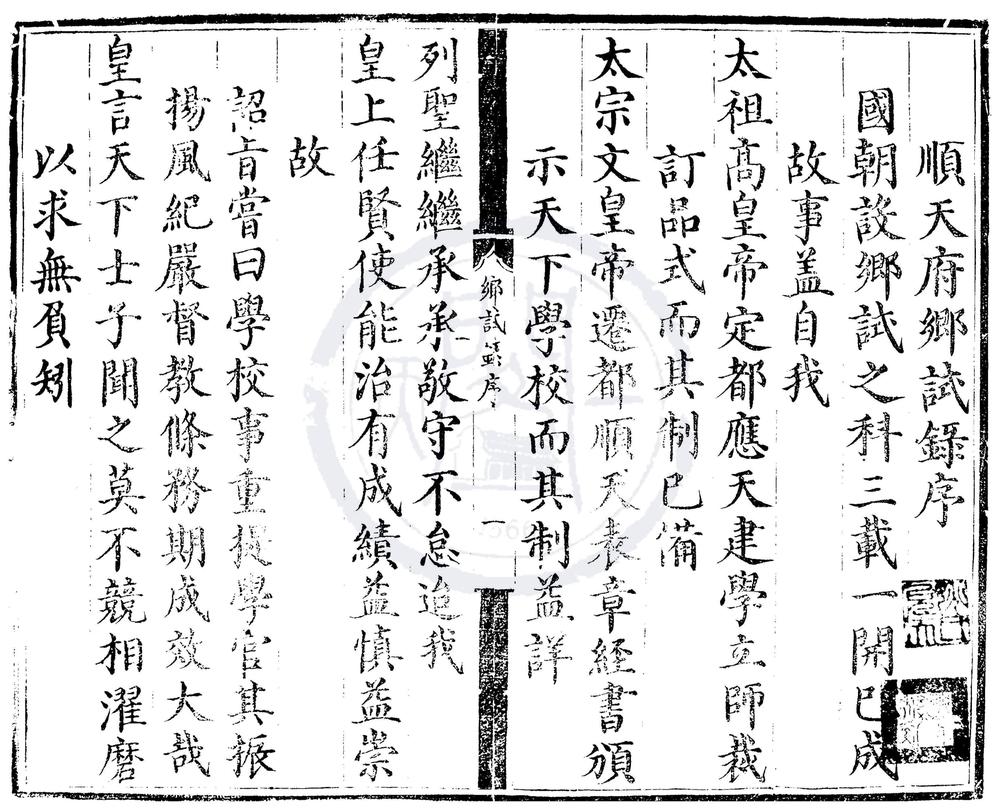 順天府鄉試錄序
國朝設鄉試之科三載一開已成
故事盖自我
太祖高皇帝定都應天建學立師裁
訂品式而其制已備
太宗文皇帝遷都順天表章經書頒
示天下學校而其制益詳
鄉試錄序
一
列聖繼繼承承敬守不怠迨我
皇上任賢使能治有成績益慎益崇
故
詔旨嘗曰學校事重提學官其振
揚風紀嚴督教條務期成效大哉
皇言天下士子聞之莫不競相濯磨
以求無負矧